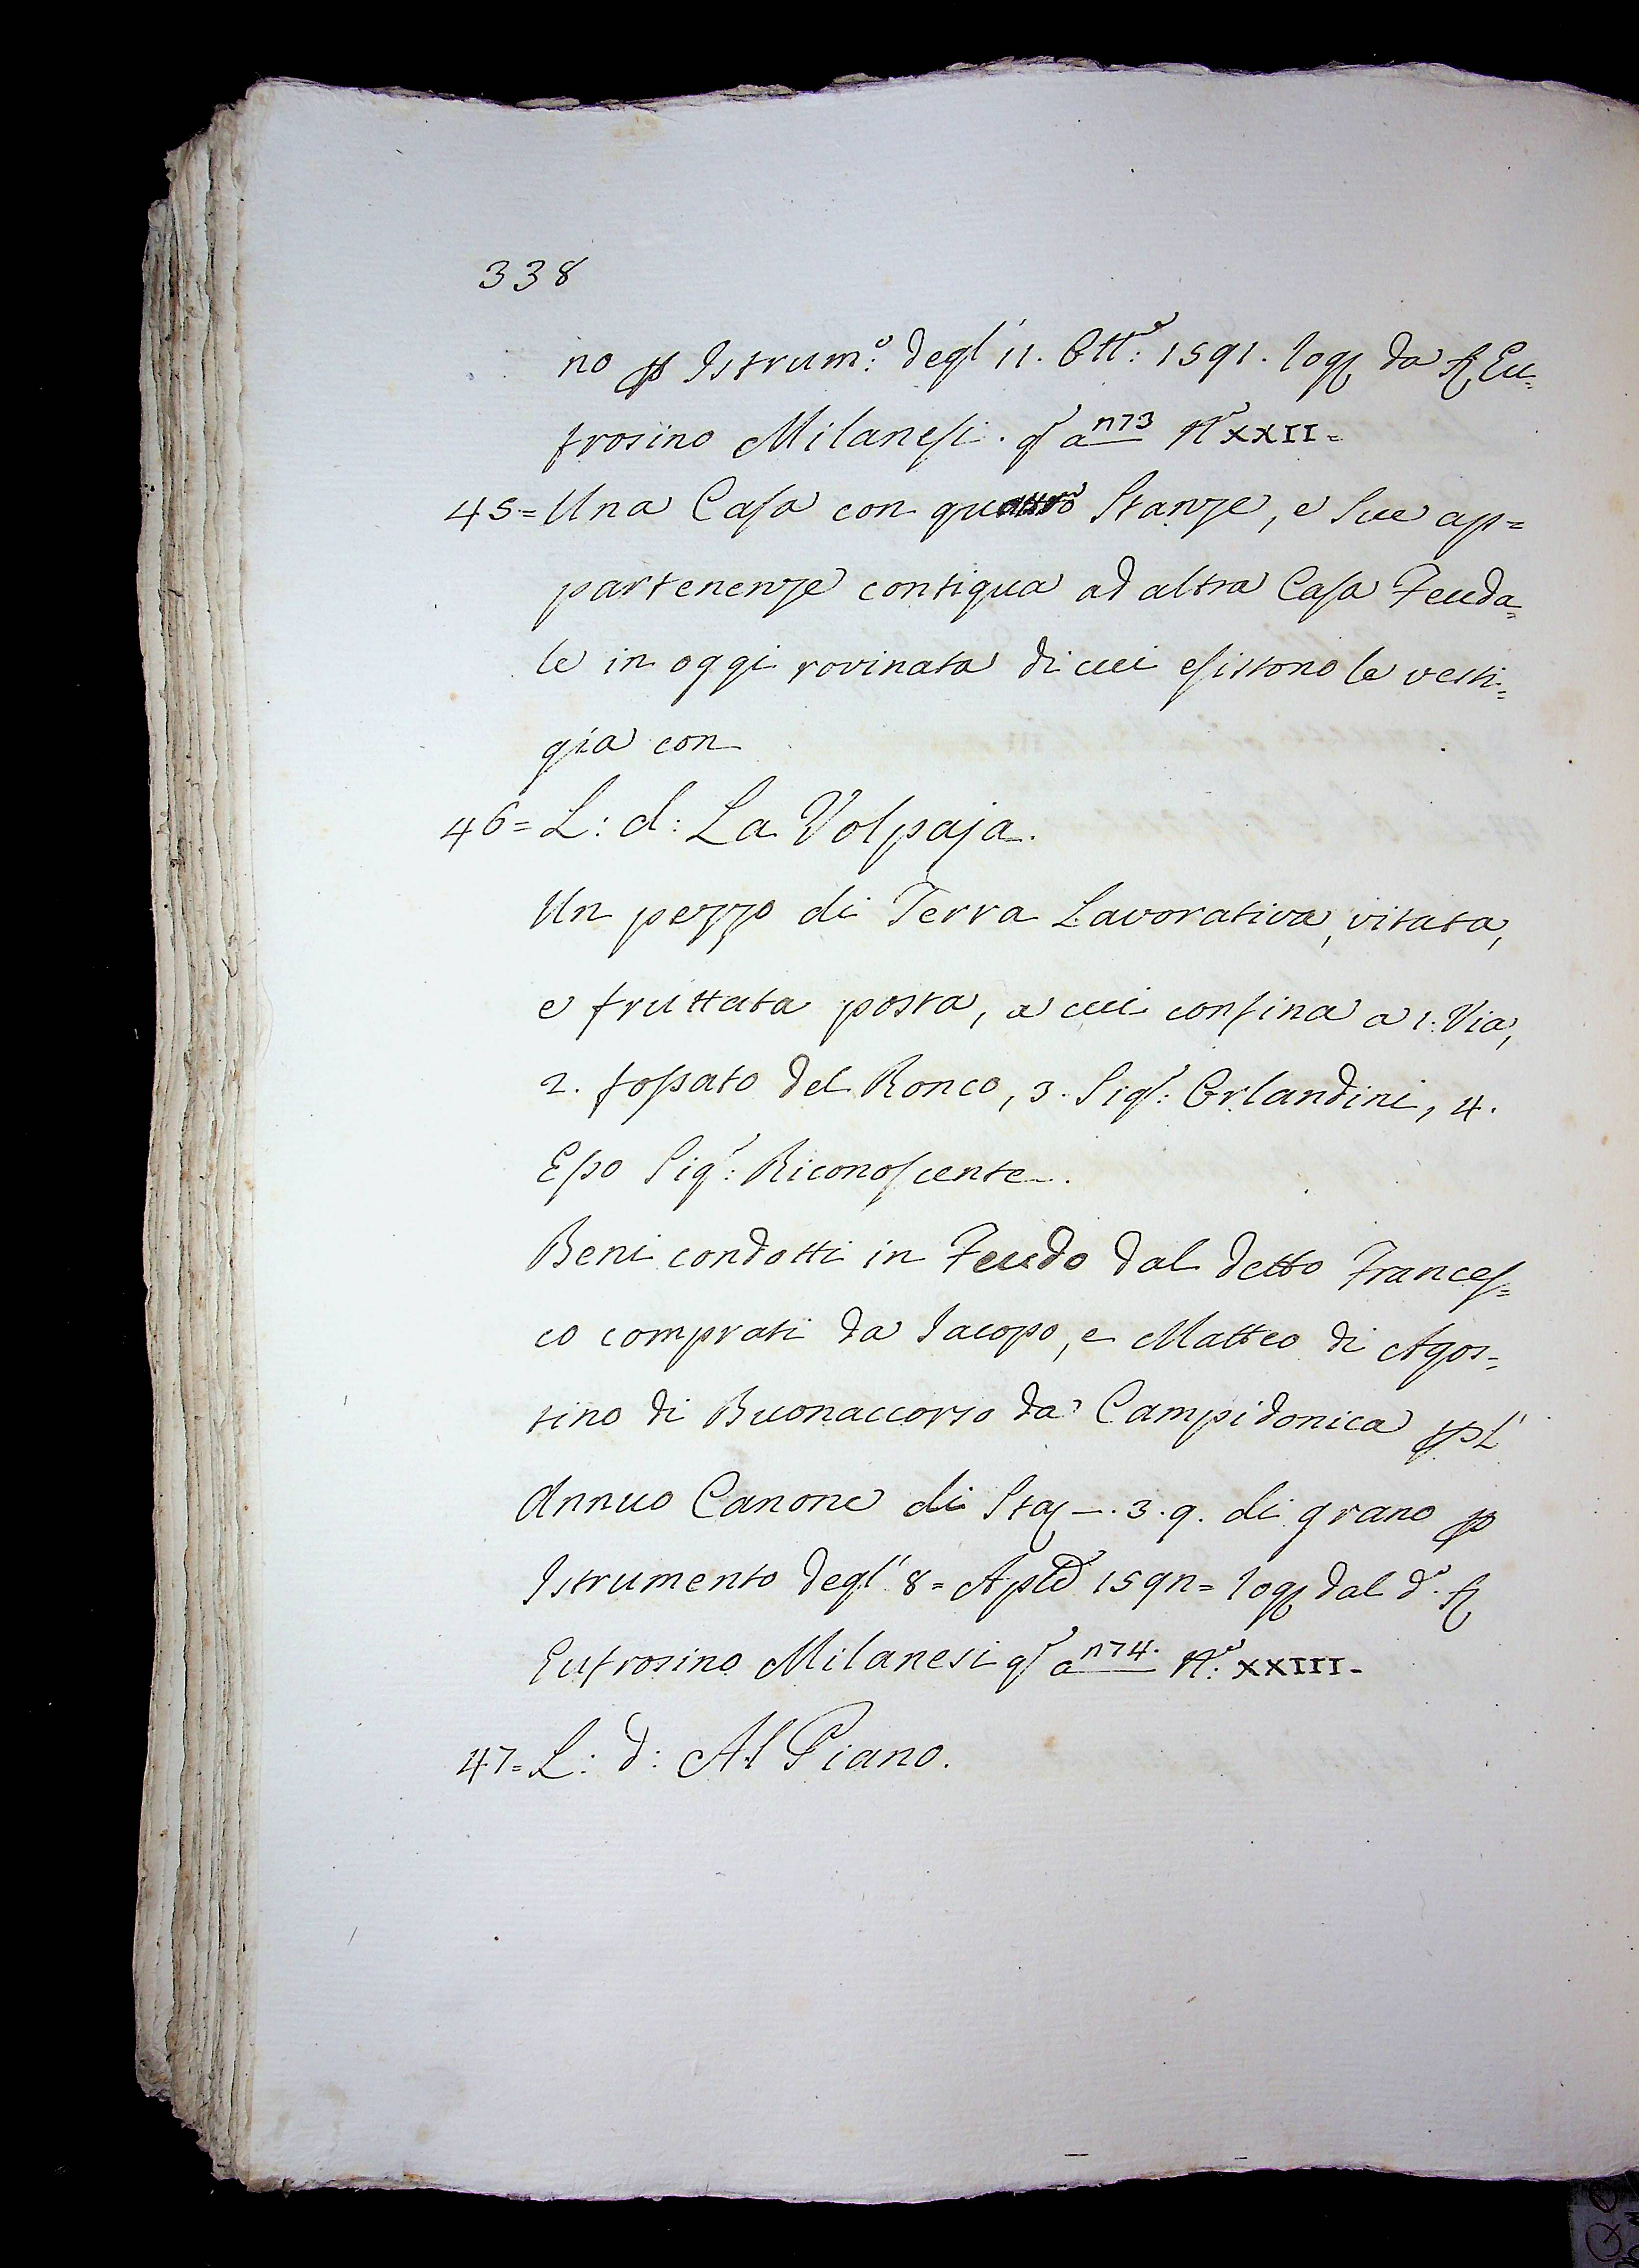 338
no p Istrum:o degl' 11. Ott:e 1591. rog da Eu=
frosino Milanesi. q a n73 N° XXII=
45= Una Casa con quattro Stanze, e Sue ap=
partenenze contigua ad altra Casa Feuda=
le in oggi rovinata di cui esistono le vesti=
gia con
46= L: d: La Volpaja.
Un pezzo di Terra Lavorativa, vitata,
e fruttata posta, a cui confina a 1: Via,
2. fossato del Ronco, 3. Sigr: Orlandini, 4.
Esso Sigr: Riconoscente.
Beni condotti in Feudo dal detto Frances=
co comprati da Iacopo, e Matteo di Agos=
tino di Buonaccorso da Campidonica p l'
Annuo Canone di Sta —. 3. q. di grano p
Istrumento degl' 8= Aple 159n= rog dal d°.
Eufrosino Milanesi q a n74. N:° XXIII-
47= L: d: Al Piano.